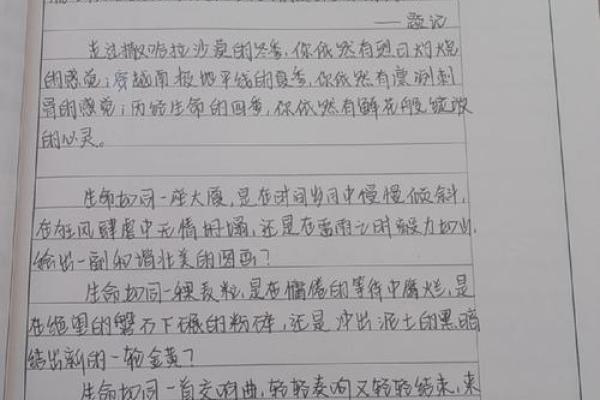 ——题记
走过撒哈拉沙漠的冬季,你依然有烈日灼烧
的感觉;穿越南极地平线的夏季,你依然有凛冽刺
骨的感觉;历经生命的四季,你依然有鲜花般绽放
的心灵。
生命如同一座大厦,是在时间岁月中慢慢倾斜,
在狂风肆虐中无情坍塌,还是在雷雨之时毅力如山,
绘出一副和谐壮美的图画?
生命如同一颗麦粒,是在慵倦的等待中腐烂,是
在绝望的磐石下碾的粉碎,还是冲出泥土的黑暗
结出新的一轮金黄?
生命如同一首交响曲,轻轻奏响又轻轻结束,来